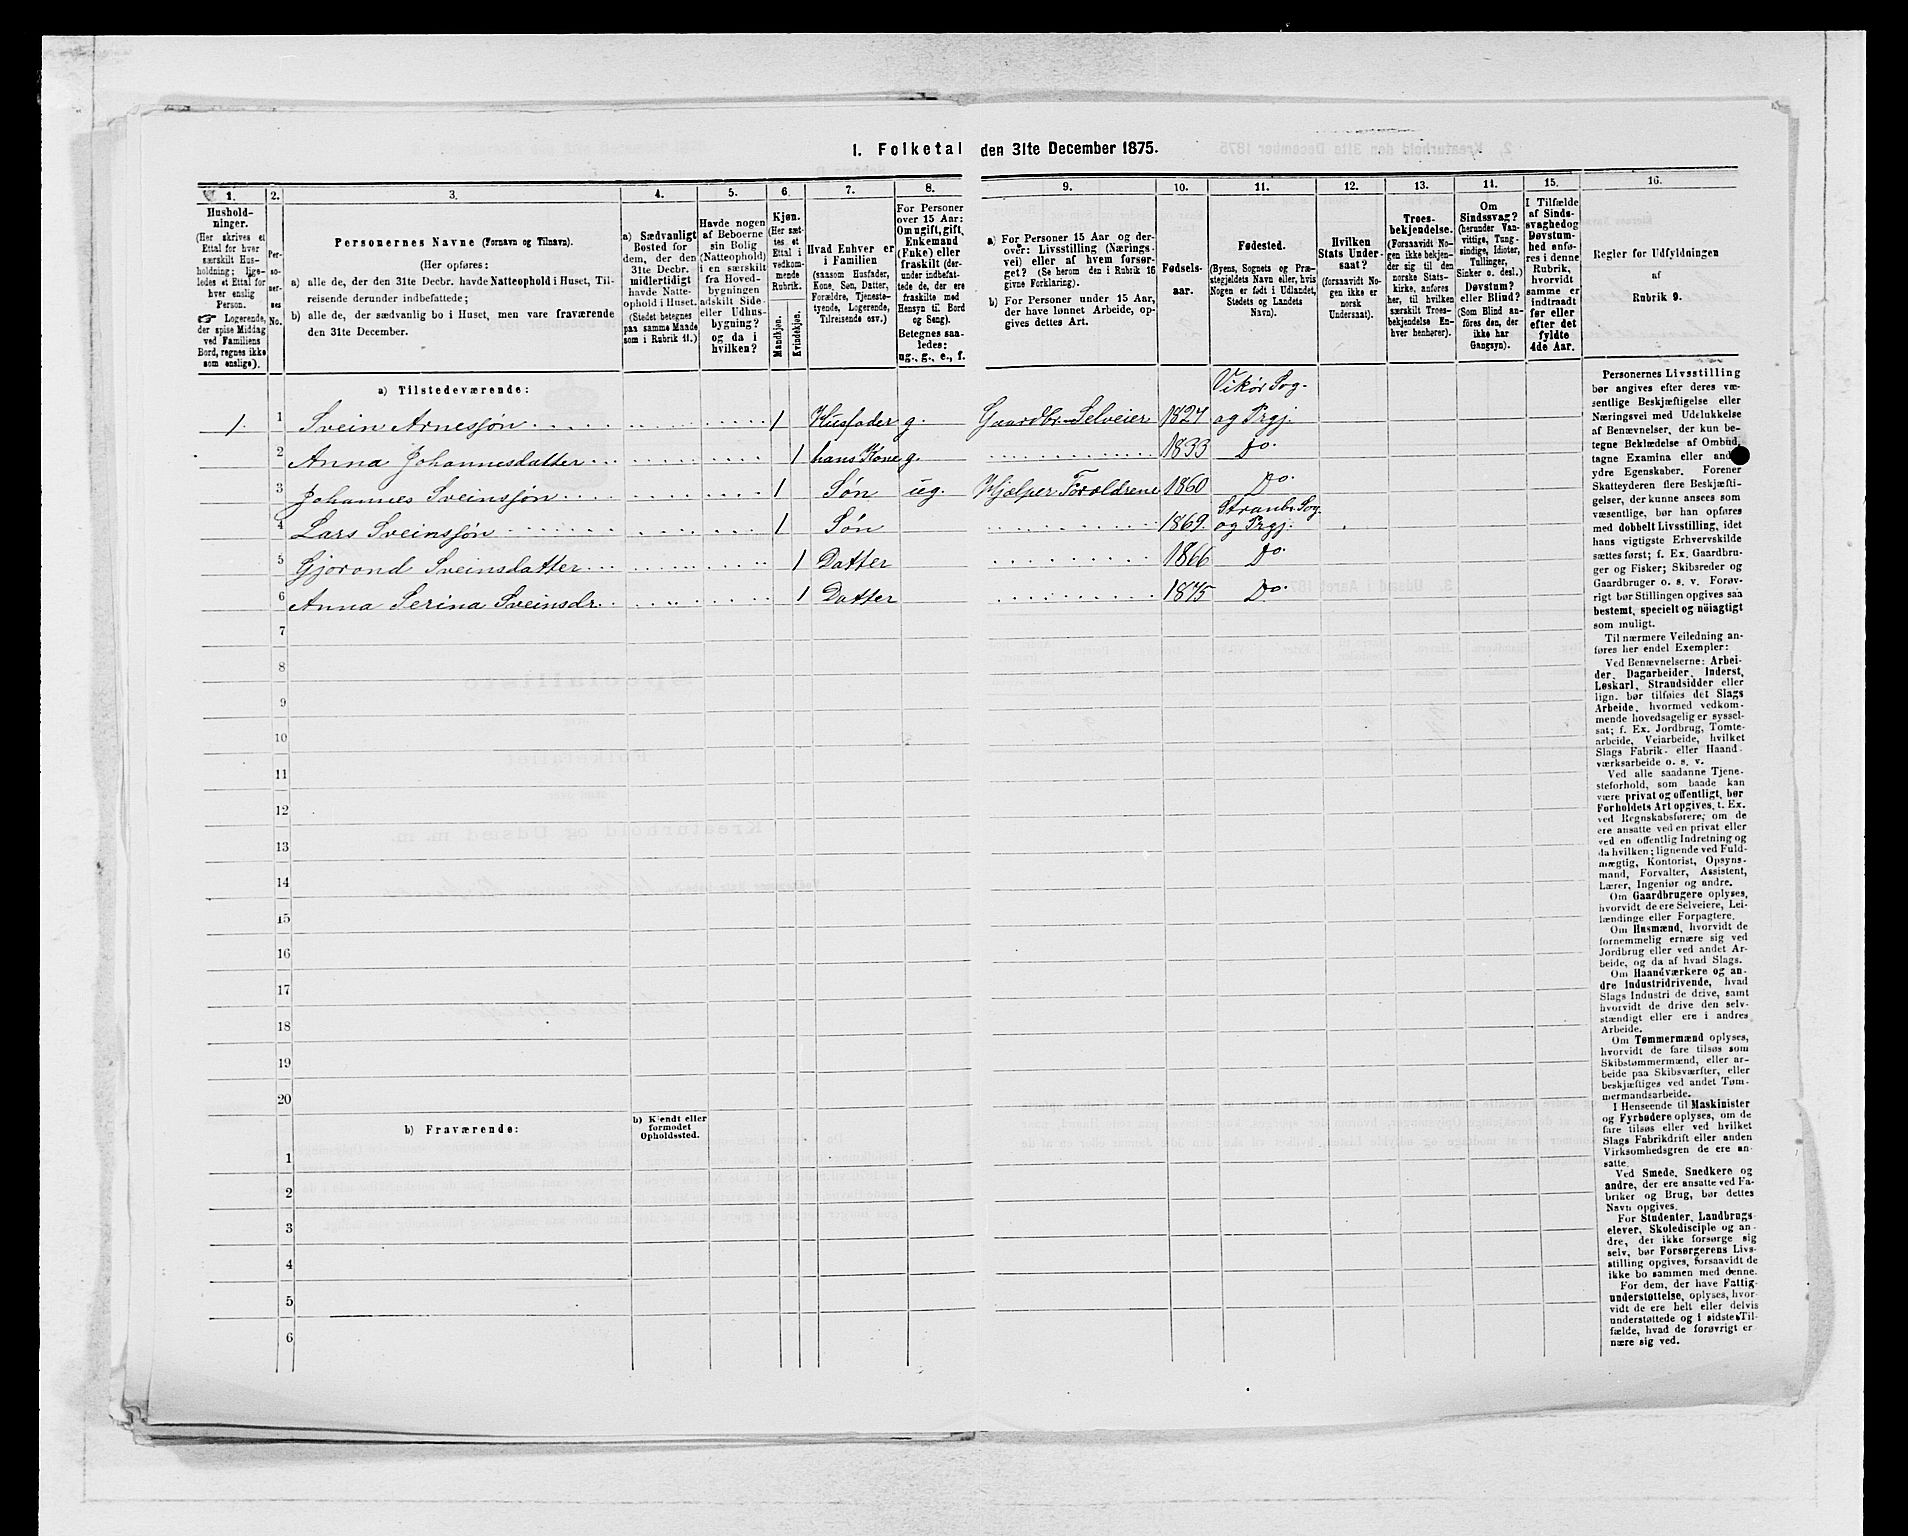 1. Folketal den 31te December 1875.
1.
2.
3.
4.
5.
6
7.
8.
9.
10.
11.
12.
13.
14.
15.
16.
Hushold-
ninger.
(Her skrives et
Ettal for hver
særskilt Hus-
holdning; lige-
ledes et Ettal for
hver enslig
Person.
☞ Logerende,
der spise Middag
ved Familiens
Bord, regnes ikke
som enslige).
Per-
so-
ner-
nes
No.
Personernes Navne (Fornavn og Tilnavn).
(Her opføres:
a) alle de, der den 31te Decbr. havde Natteophold i Huset, Til-
reisende derunder indbefattede;
b) alle de, der sædvanlig bo i Huset, men vare fraværende
den 31te December.
a) Sædvanligt
Bosted for
dem, der den
31te Decbr.
midlertidigt
havde Natte-
ophold i Huset.
(Stedet betegnes
paa samme Maade
som i Rubrik 11.)
Havde nogen
af Beboerne
sin Bolig
(Natteophold)
i en særskilt
fra Hoved-
bygningen
adskilt Side-
eller Udhus-
bygning?
og da i
hvilken?
Kjøn.
(Her sæt-
tes et
Ettal i
vedkom-
mende
Rubrik.
Mandkjøn.
Kvindekjøn.
Hvad Enhver er
i Familien
(saasom Husfader,
Kone, Søn, Datter,
Forældre, Tjeneste-
tyende, Logerende,
Tilreisende osv.)
For Personer
over 15 Aar:
Om ugift, gift,
Enkemand
(Enke) eller
fraskilt (der-
under indbefat-
tede de, der ere
fraskilte med
Hensyn til Bord
og Seng).
Betegnes saa-
ledes:
ug., g., e., f.
a) For Personer 15 Aar og der-
over: Livsstilling (Nærings-
vei) eller af hvem forsør-
get? (Se herom den i Rubrik 16
givne Forklaring).
b) For Personer under 15 Aar,
der have lønnet Arbeide, op-
gives dettes Art.
Fødsels-
aar.
Fødested.
(Byens, Sognets og Præ-
stegjeldets Navn eller, hvis
Nogen er født i Udlandet,
Stedets og Landets
Navn).
Hvilken
Stats Under-
saat?
(forsaavidt No-
gen ikke er
norsk
Undersaat).
Troes-
bekjendelse.
(Forsaavidt No-
gen ikke bekjen-
der sig til den
norske Stats-
kirke, anføres
her, til hvilken
særskilt Troes-
bekjendelse En-
hver henhører).
Om
Sindssvag?
(herunder Van-
vittige, Tung-
sindige, Idioter,
Tullinger,
Sinker o. desl.)
Døvstum?
eller Blind?
(Som Blind an-
føres den, der
ikke har
Gangsyn).
I Tilfælde
af Sinds-
svaghed og
Døvstum-
hed anfø-
res i denne
Rubrik,
hvorvidt
samme er
indtraadt
før eller
efter det
fyldte
4de Aar.
Regler for Udfyldningen
af
Rubrik 9.
a) Tilstedeværende:
Vikör Sog.
1. 1 Svein Arnessøn 1 Husfader g. Gaardbr. Selveier 1827 og Prgj.
2 Anna Johannesdatter 1 hans Kone g. 1833 Do
3 Johannes Sveinssøn 1 Søn ug. Hjælper Forældrene 1860 Do.
Strandb. Sog.
4 Lars Sveinssøn 1 Søn 1869 og Prgj.
5 Gjørond Sveinsdatter 1 Datter 1866 Do.
6 Anna Serina Sveinsdr. 1 Datter 1875 Do.
7
8
9
10
11
12
13
14
15
16
17
18
19
20
b) Fraværende:
b) Kjendt eller
formodet
Opholdssted.
1
2
3
4
5
6
Personernes Livsstilling
bør angives efter deres væ-
sentlige Beskjæftigelse eller
Næringsvei med Udelukkelse
af Benævnelser, der kun be-
tegne Beklædelse af Ombud,
tagne Examina eller andre
ydre Egenskaber. Forener
Skatteyderen flere Beskjæfti-
gelser, der kunne ansees som
væsentlige, bør han opføres
med dobbelt Livsstilling, idet
hans vigtigste Erhvervskilde
sættes først; f. Ex. Gaardbru-
ger og Fisker; Skibsreder og
Gaardbruger o. s. v. Forøv-
rigt bør Stillingen opgives saa
bestemt, specielt og nöiagtigt
som muligt.
Til nærmere Veiledning an-
føres her endel Exempler:
Ved Benævnelserne: Arbei-
der, Dagarbeider, Inderst,
Løskarl, Strandsidder eller
lign. bør tilføies det Slags
Arbeide, hvormed vedkom-
mende hovedsagelig er syssel-
sat; f. Ex. Jordbrug, Tomte-
arbeide, Veiarbeide, hvilket
Slags Fabrik- eller Haand-
værksarbeide o. s. v.
Ved alle saadanne Tjene-
steforhold, som baade kan
være privat og offentligt, bør
Forholdets Art opgives, t. Ex.
ved Regnskabsførere, om de
ere ansatte ved en privat eller
ved en offentlig Indretning og
da hvilken; lignende ved Fuld-
mægtig, Kontorist, Opsyns-
mand, Forvalter, Assistent,
Lærer, Ingeniør og andre.
Om Gaardbrugere oplyses,
hvorvidt de ere Selveiere, Lei-
lændinge eller Forpagtere.
Om Husmænd, hvorvidt de
fornemmelig ernære sig ved
Jordbrug eller ved andet Ar-
beide, og da af hvad Slags.
Om Haandværkere og an-
dre Industridrivende, hvad
Slags Industri de drive, samt
hvorvidt de drive den selv-
stændigt eller ere i andres
Arbeide.
Om Tømmermænd oplyses,
hvorvidt de fare tilsøs som
Skibstømmermænd, eller ar-
beide paa Skibsværfter, eller
beskjæftiges ved andet Tøm-
mermandsarbeide.
I Henseende til Maskinister
og Fyrbødere oplyses, om de
fare tilsøs eller ved hvilket
Slags Fabrikdrift eller anden
Virksomhedsgren de ere an-
satte.
Ved Smede, Snedkere og
andre, der ere ansatte ved Fa-
briker og Brug, bør dettes
Navn opgives.
For Studenter, Landbrugs-
elever, Skoledisciple og an-
dre, der ikke forsørge sig
selv, bør Forsørgerens Livs-
stilling opgives, forsaavidt de
ikke bo sammen med denne.
For dem, der have Fattig-
understøttelse, oplyses, hvor-
vidt de ere helt eller delvis
understøttede og i sidste Til-
fælde, hvad de forøvrigt er-
nære sig ved.